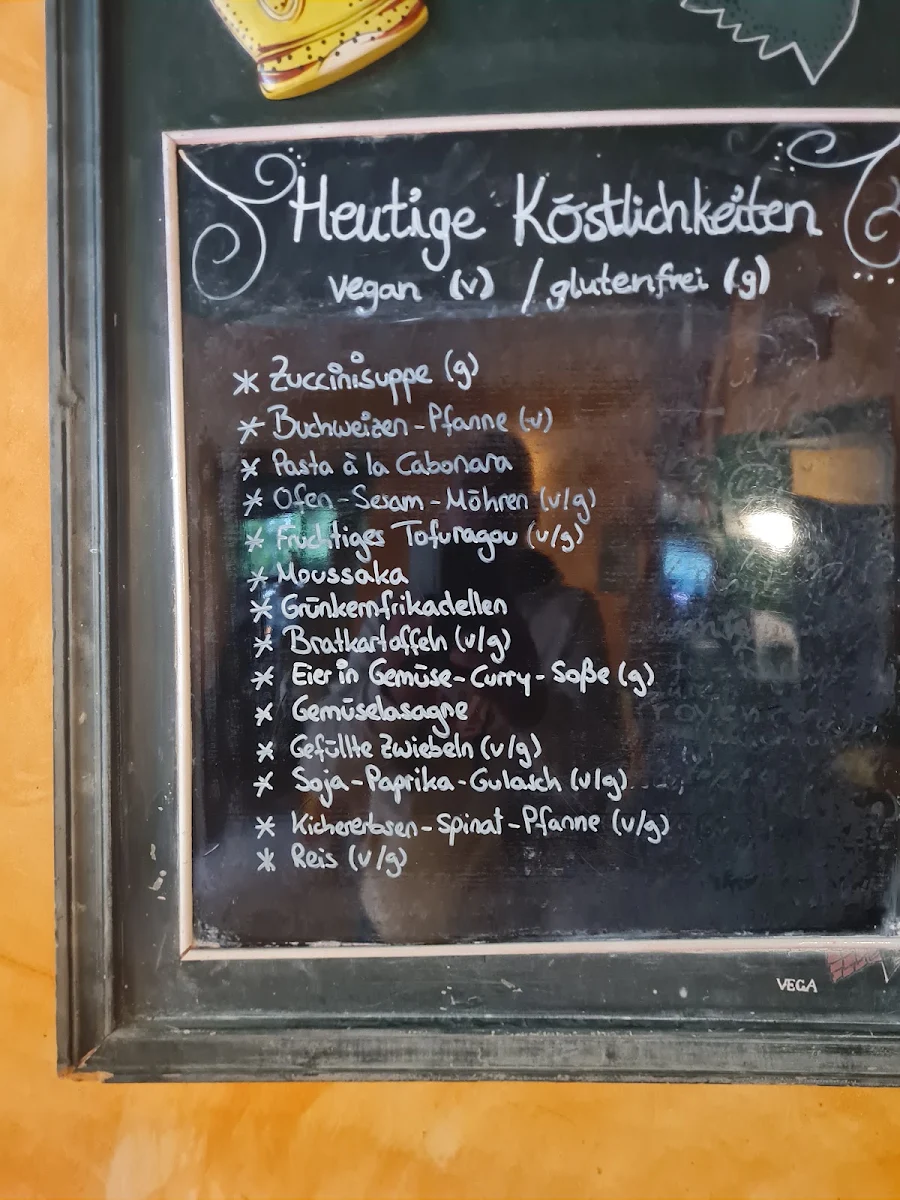 Heutige Köstlichkeiten
vegan (v) / glutenfrei (g)
* Zuccinisuppe (g)
* Buchweizen-Pfanne (v)
* Pasta à la Cabonara
* Ofen-Sesam-Möhren (v/g)
* Fruchtiges Tofuragou (v/g)
* Moussaka
* Grünkernfrikadellen
* Bratkartoffeln (v/g)
* Eier in Gemüse-Curry-Soße (g)
* Gemüselasagne
* Gefüllte Zwiebeln (v/g)
* Soja-Paprika-Gulasch (v/g)
* Kichererbsen-Spinat-Pfanne (v/g)
* Reis (v/g)
VEGA